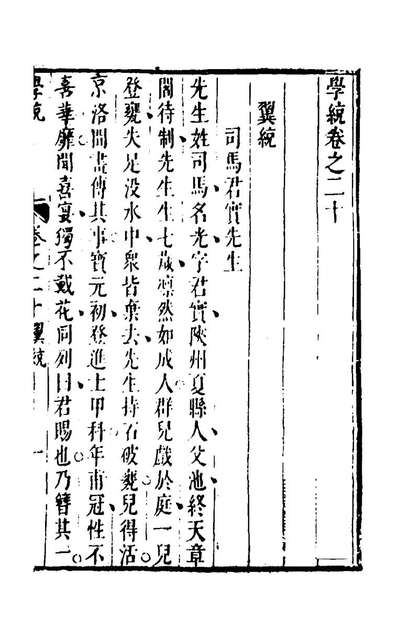 學統卷之二十
翼統
司馬君實先生
先生姓司馬名光字君實陝州夏縣人父池終天章
閣待制先生生七歲凛然如成人群兒戲於庭一兒
登甕失足沒水中衆皆棄去先生持石破甕兒得活
京洛間畫傳其事寶元初登進士甲科年甫冠性不
喜華靡聞喜宴獨不戴花同列曰君賜也乃簪其一
學統
卷之二十翼統
一